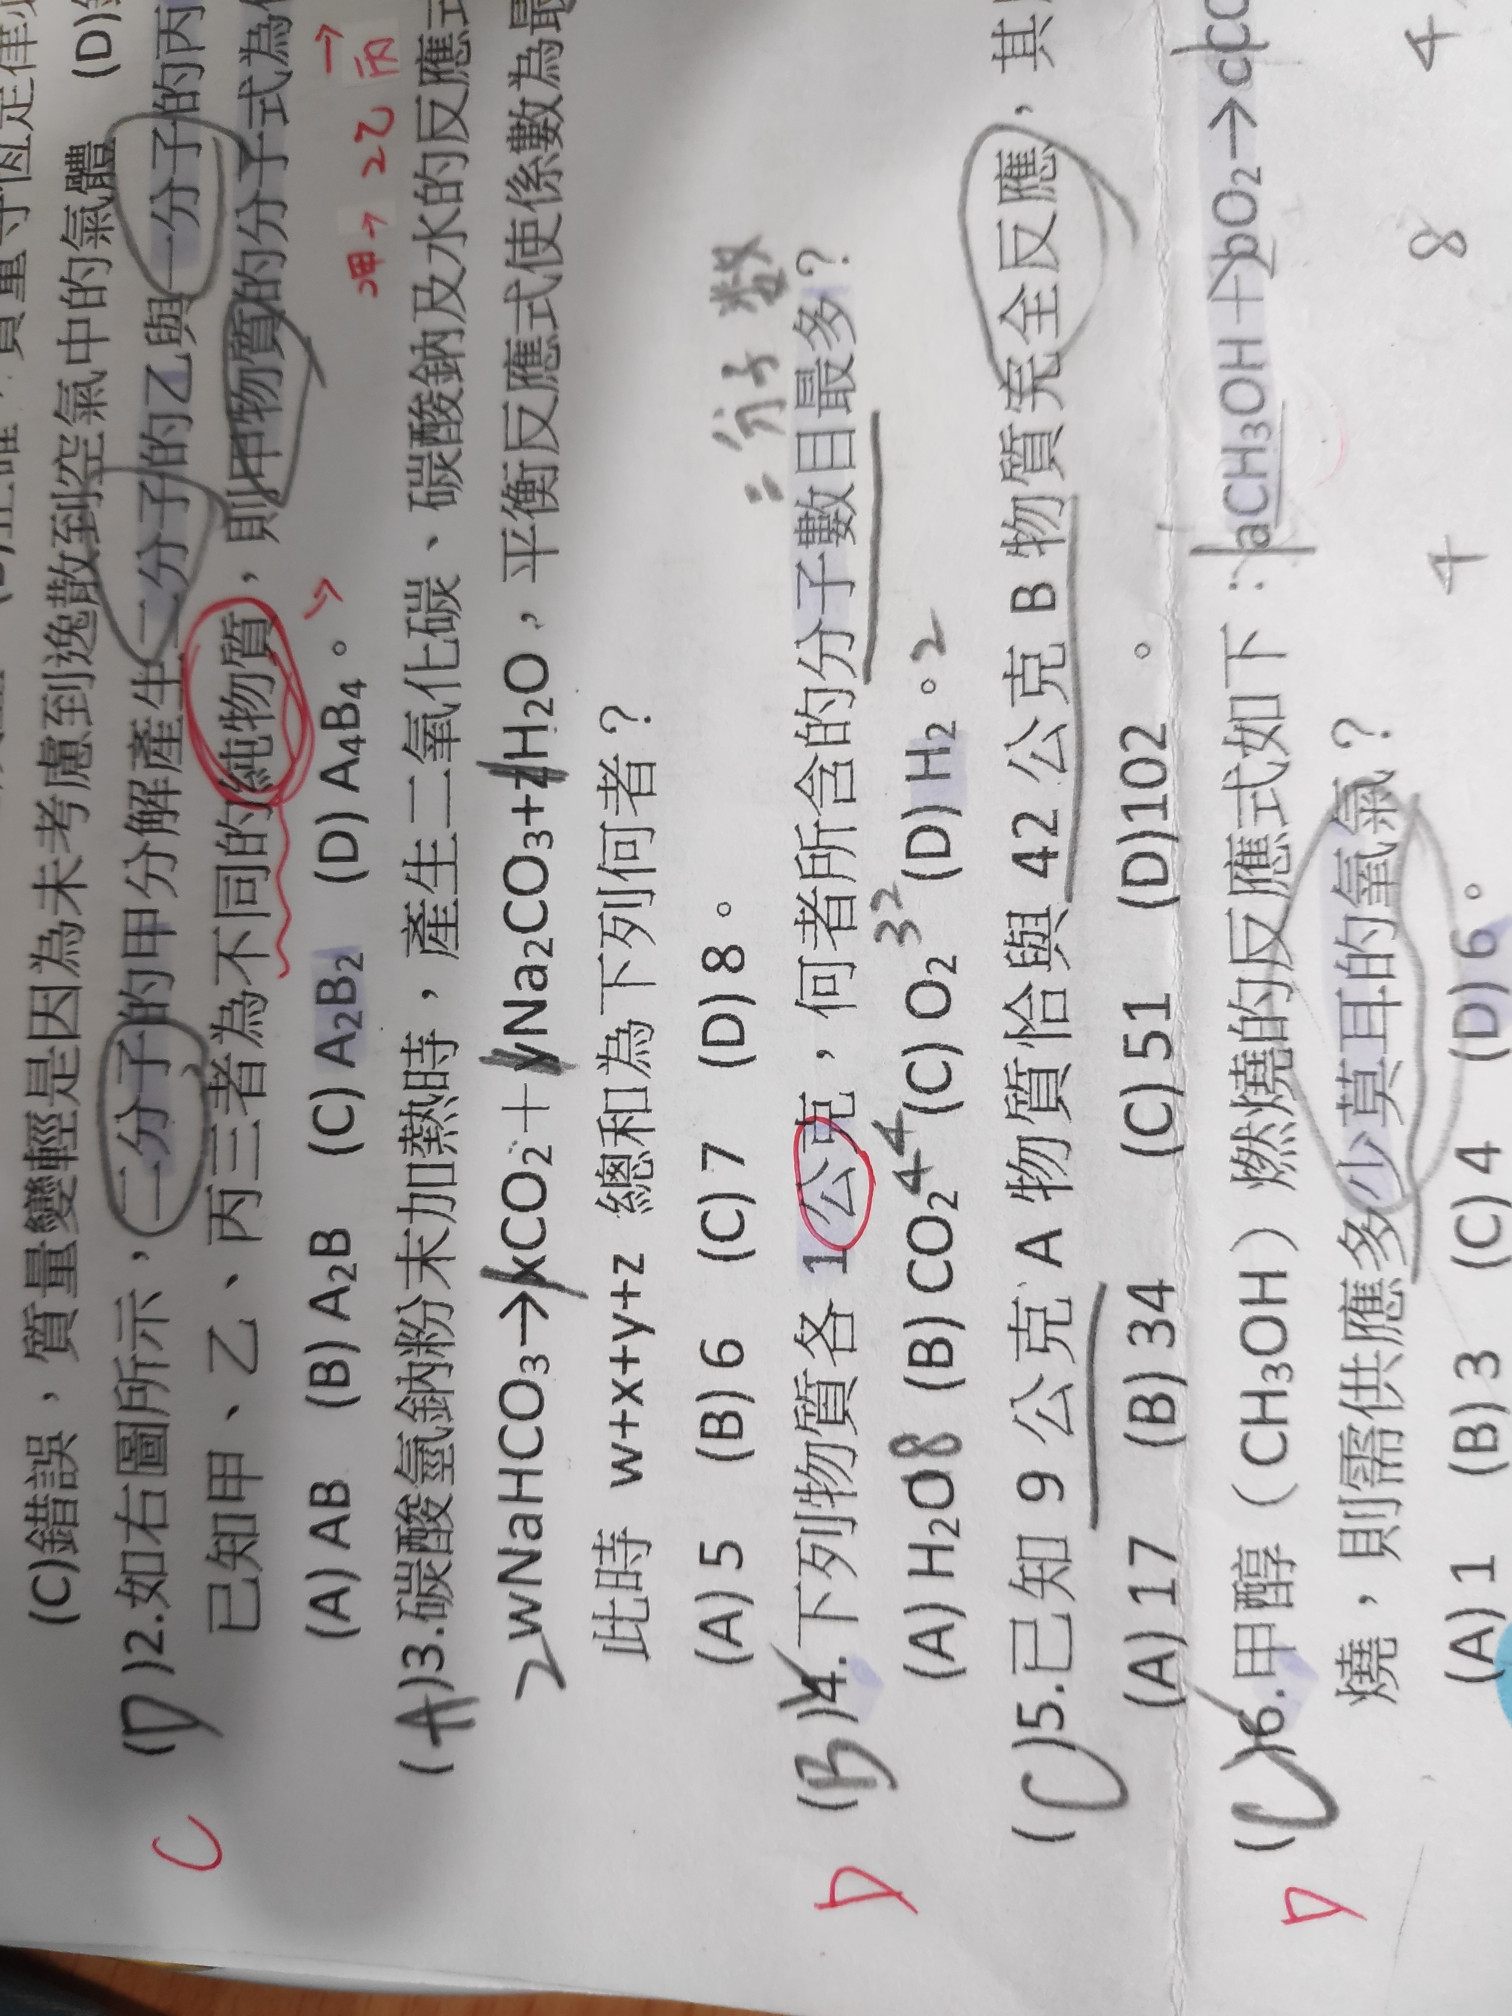 (C)錯誤，質量變輕是因為未考慮到逸散到空氣中的氣體 (D)
C (D)2.如右圖所示，二分子的甲分解產生二分子的乙與一分子的丙
已知甲、乙、丙三者為不同的純物質，則甲物質的分子式為
(A) AB (B) A₂B (C) A₂B₂ (D) A₄B₄。
2甲→2乙 丙
(A)3.碳酸氫鈉粉末加熱時，產生二氧化碳、碳酸鈉及水的反應式
2 wNaHCO₃→xCO₂＋yNa₂CO₃+zH₂O，平衡反應式使係數為最
此時 w+x+y+z 總和為下列何者？
(A) 5 (B) 6 (C) 7 (D) 8。
= 分子数
D (B)4.下列物質各 1 公克，何者所含的分子數目最多？
(A) H₂O 8 (B) CO₂ 44 (C) O₂ 32 (D) H₂。2
(C)5.已知 9 公克 A 物質恰與 42 公克 B 物質完全反應，其
(A) 17 (B) 34 (C) 51 (D)102 。
D (C)6.甲醇（CH₃OH）燃燒的反應式如下：aCH₃OH＋bO₂→cCO
燒，則需供應多少莫耳的氧氣？
(A) 1 (B) 3 (C) 4 (D) 6。
4 8 4